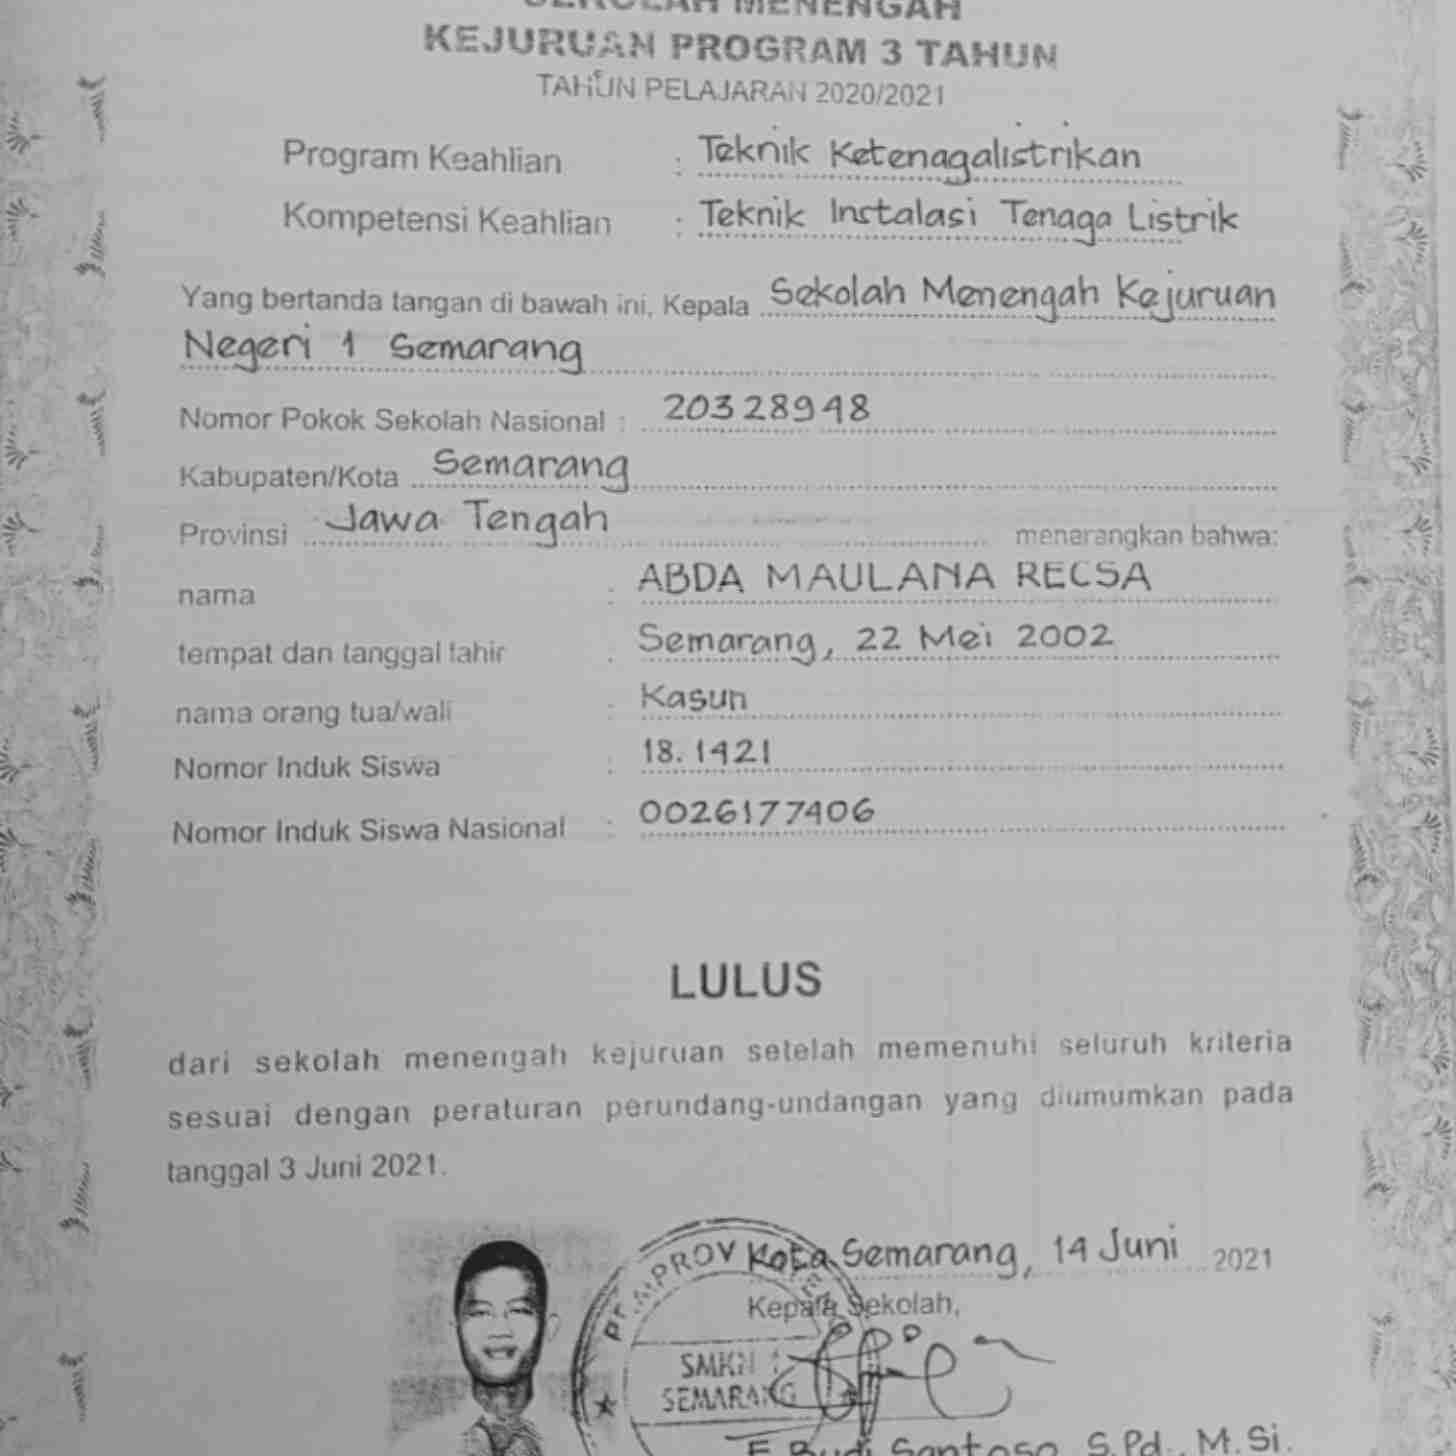 SEKOLAH MENENGAH
KEJURUAN PROGRAM 3 TAHUN
TAHUN PELAJARAN 2020/2021
Program Keahlian : Teknik Ketenagalistrikan
Kompetensi Keahlian : Teknik Instalasi Tenaga Listrik
Yang bertanda tangan di bawah ini, Kepala Sekolah Menengah Kejuruan
Negeri 1 Semarang
Nomor Pokok Sekolah Nasional : 20328948
Kabupaten/Kota Semarang
Provinsi Jawa Tengah menerangkan bahwa:
nama : ABDA MAULANA RECSA
tempat dan tanggal lahir : Semarang, 22 Mei 2002
nama orang tua/wali : Kasun
Nomor Induk Siswa : 18.1421
Nomor Induk Siswa Nasional : 0026177406
LULUS
dari sekolah menengah kejuruan setelah memenuhi seluruh kriteria
sesuai dengan peraturan perundang-undangan yang diumumkan pada
tanggal 3 Juni 2021.
Kota Semarang, 14 Juni 2021
Kepala Sekolah,
PROV
SMKN 1
SEMARANG
Budi Santoso, S.Pd., M.Si.